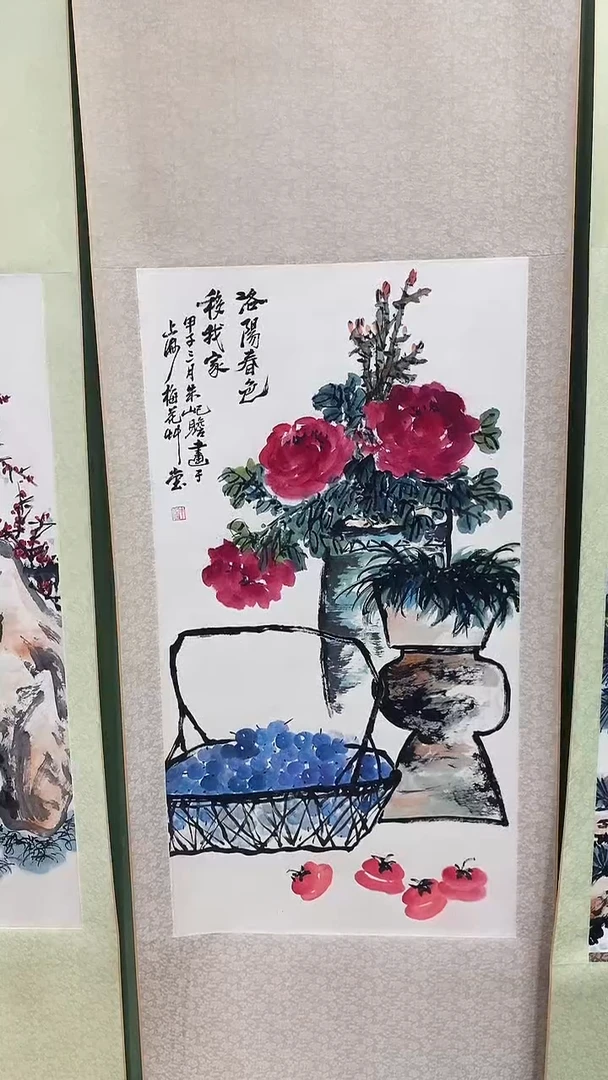 洛陽春色
移我家
甲子三月朱屺瞻畫于
上海梅花艸堂